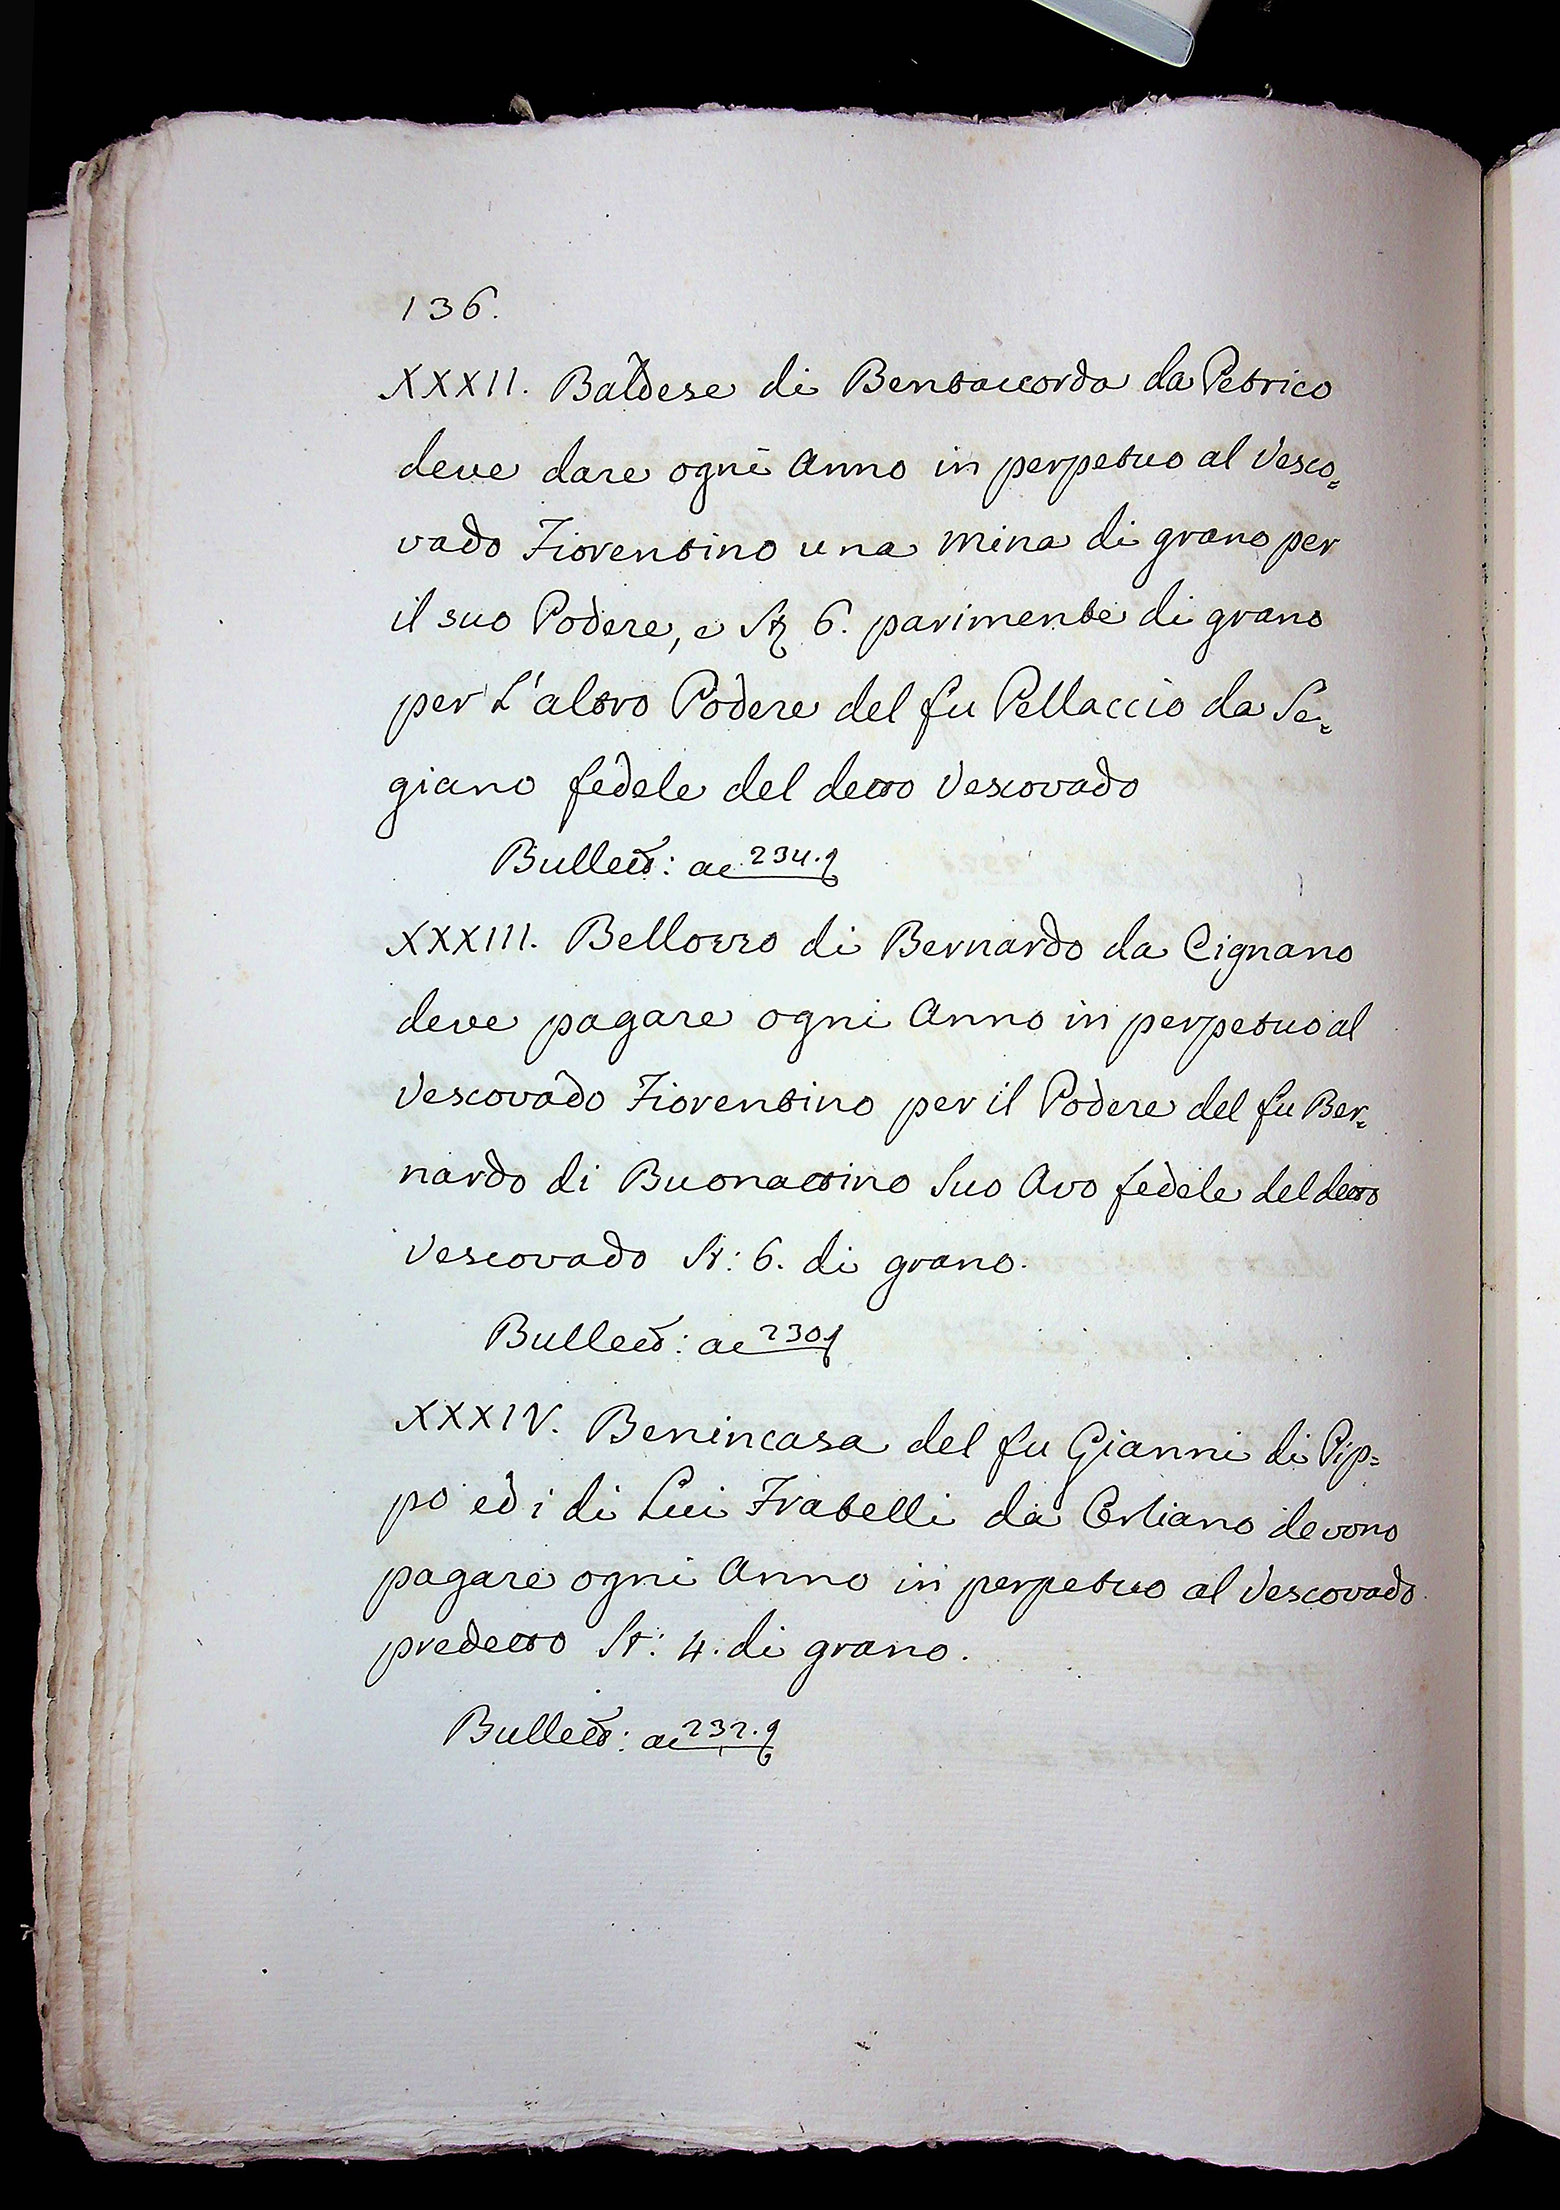 136.
XXXII. Baldese di Bentaccorda da Petrico
deve dare ogni Anno in perpetuo al Vesco=
vado Fiorentino una mina di grano per
il suo Podere, e St 6. parimente di grano
per L'altro Podere del fu Pellaccio da Se=
giano fedele del detto Vescovado
Bullett: ac 234.
XXXIII. Bellozzo di Bernardo da Cignano
deve pagare ogni Anno in perpetuo al
Vescovado Fiorentino per il Podere del fu Ber=
nardo di Buonattino Suo Avo fedele del detto
Vescovado St: 6. di grano.
Bullett: ac 230
XXXIV. Benincasa del fu Gianni di Pip=
po ed i di Lui Fratelli da devono
pagare ogni Anno in perpetuo al Vescovado
predetto St: 4. di grano.
Bullett: ac 232.